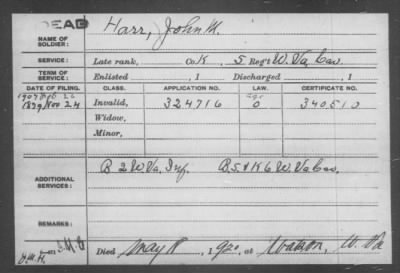 DEAD
NAME OF SOLDIER: Harr, John M.
SERVICE: Late rank, Co. K, 5 Reg't W. Va. Cav.
TERM OF SERVICE: Enlisted , 1 Discharged , 1
DATE OF FILING. CLASS. APPLICATION NO. LAW. CERTIFICATE NO.
1907 Feb 26
1879 Nov 24 Invalid, 324716 0 340510
Widow,
Minor,
ADDITIONAL SERVICES: B 2 W. Va. Inf. B 5 & K 6 W. Va. Cav.
REMARKS:
Died May 8, 1920, at Watson, W. Va